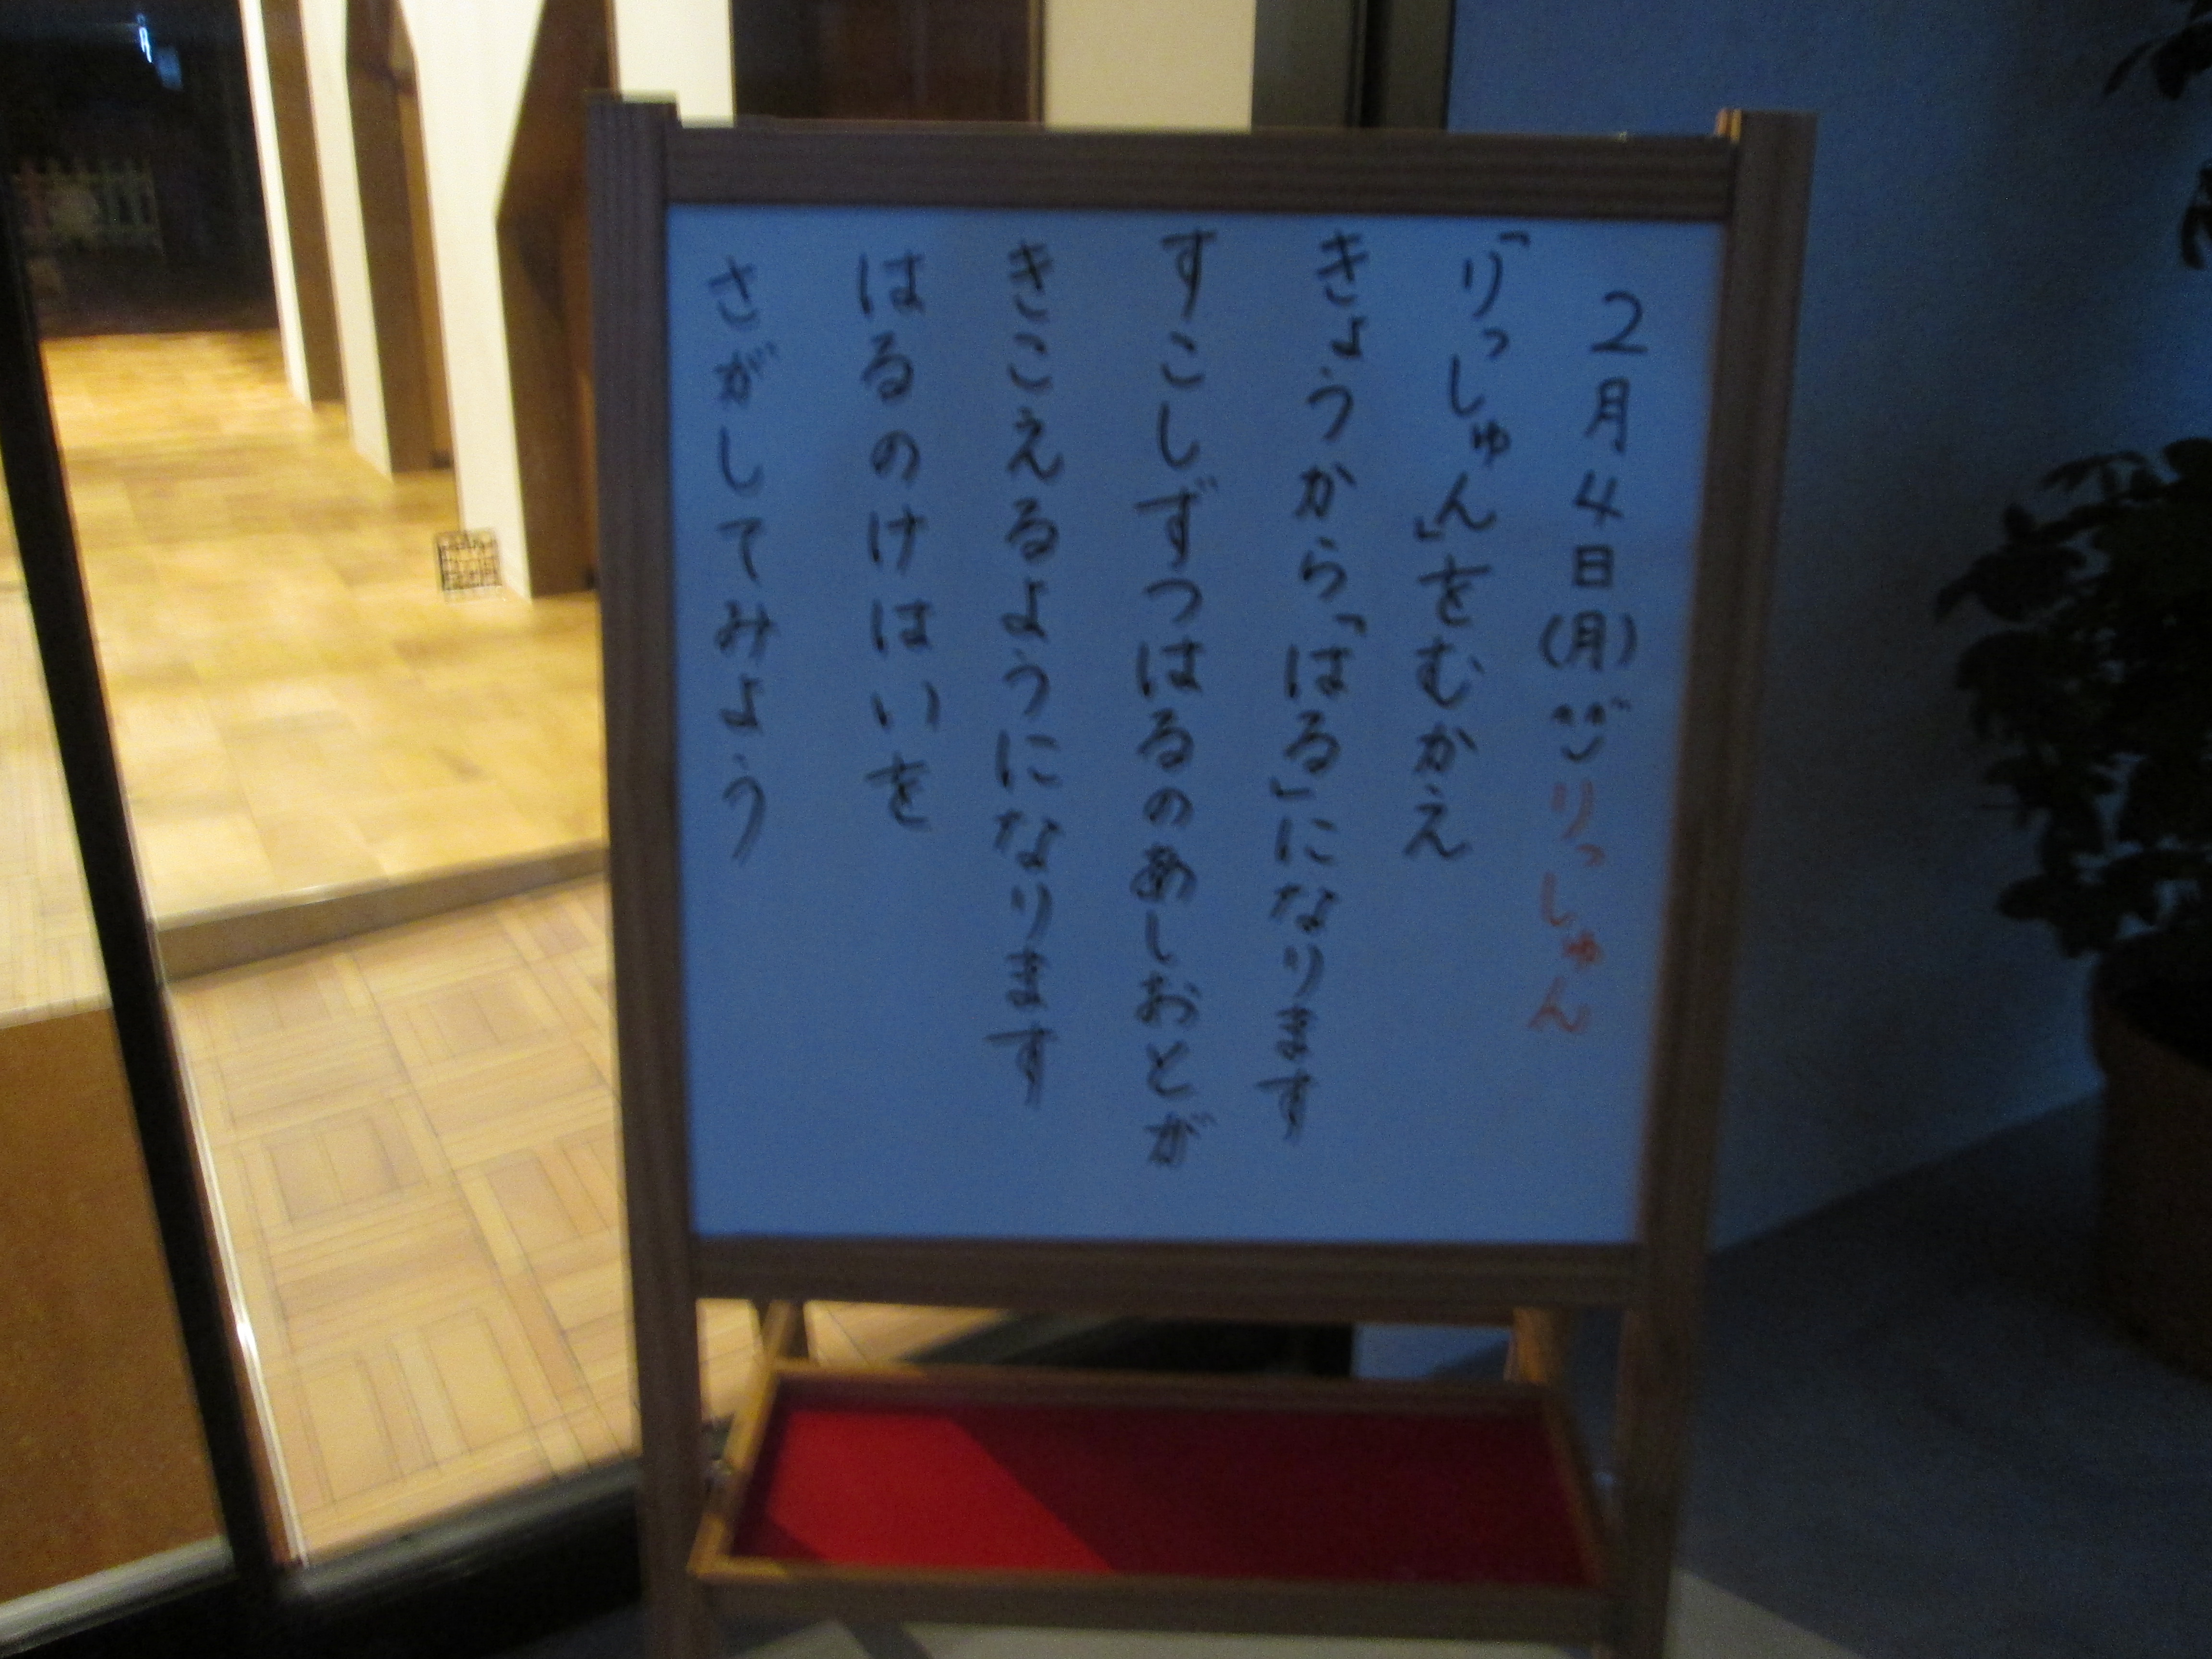 2月4日(月)りっしゅん
「りっしゅん」をむかえ
きょうから「はる」になります
すこしずつはるのあしおとが
きこえるようになります
はるのけはいを
さがしてみよう